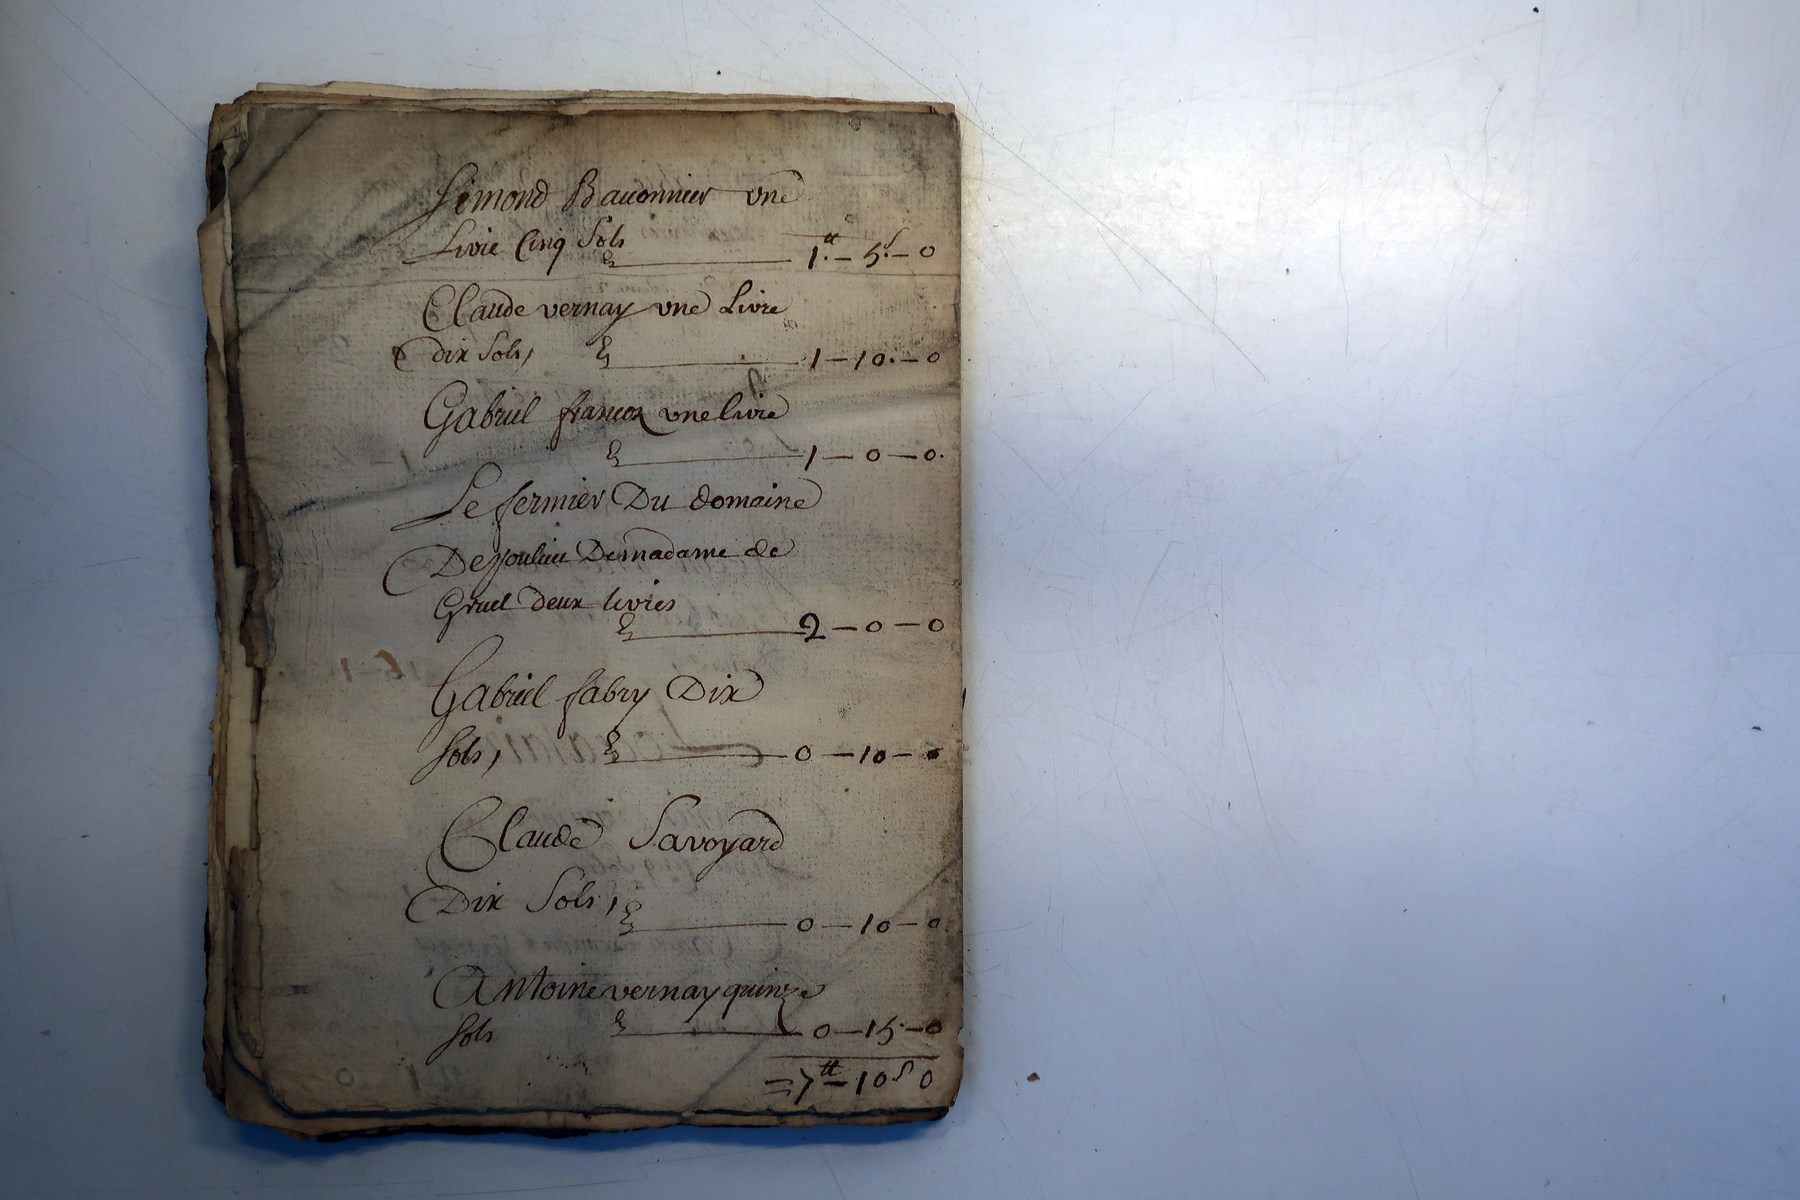 Simond Bauonnier une
Livre Cinq Sols 1.tt – 5.s – 0
Claude vernay une Livre
dix Sols, 1 – 10. – 0
Gabriel francoz une livre
1 – 0 – 0.
Le fermier Du domaine
De Demadame de
Gruel deux livres
2 – 0 – 0
Gabriel fabry Dix
Sols, 0 – 10 – 0
Claude Savoyard
Dix Sols, 0 – 10 – 0
Antoine vernay quinze
Sols 0 – 15. – 0
= 7tt – 10s 0